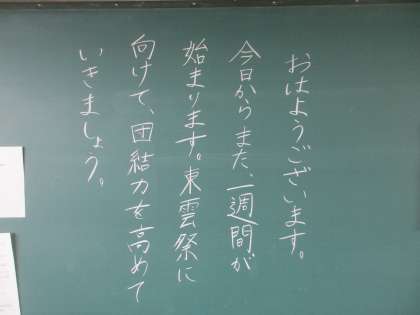 おはようございます。
今日からまた、一週間が
始まります。東雲祭に
向けて、団結力を高めて
いきましょう。